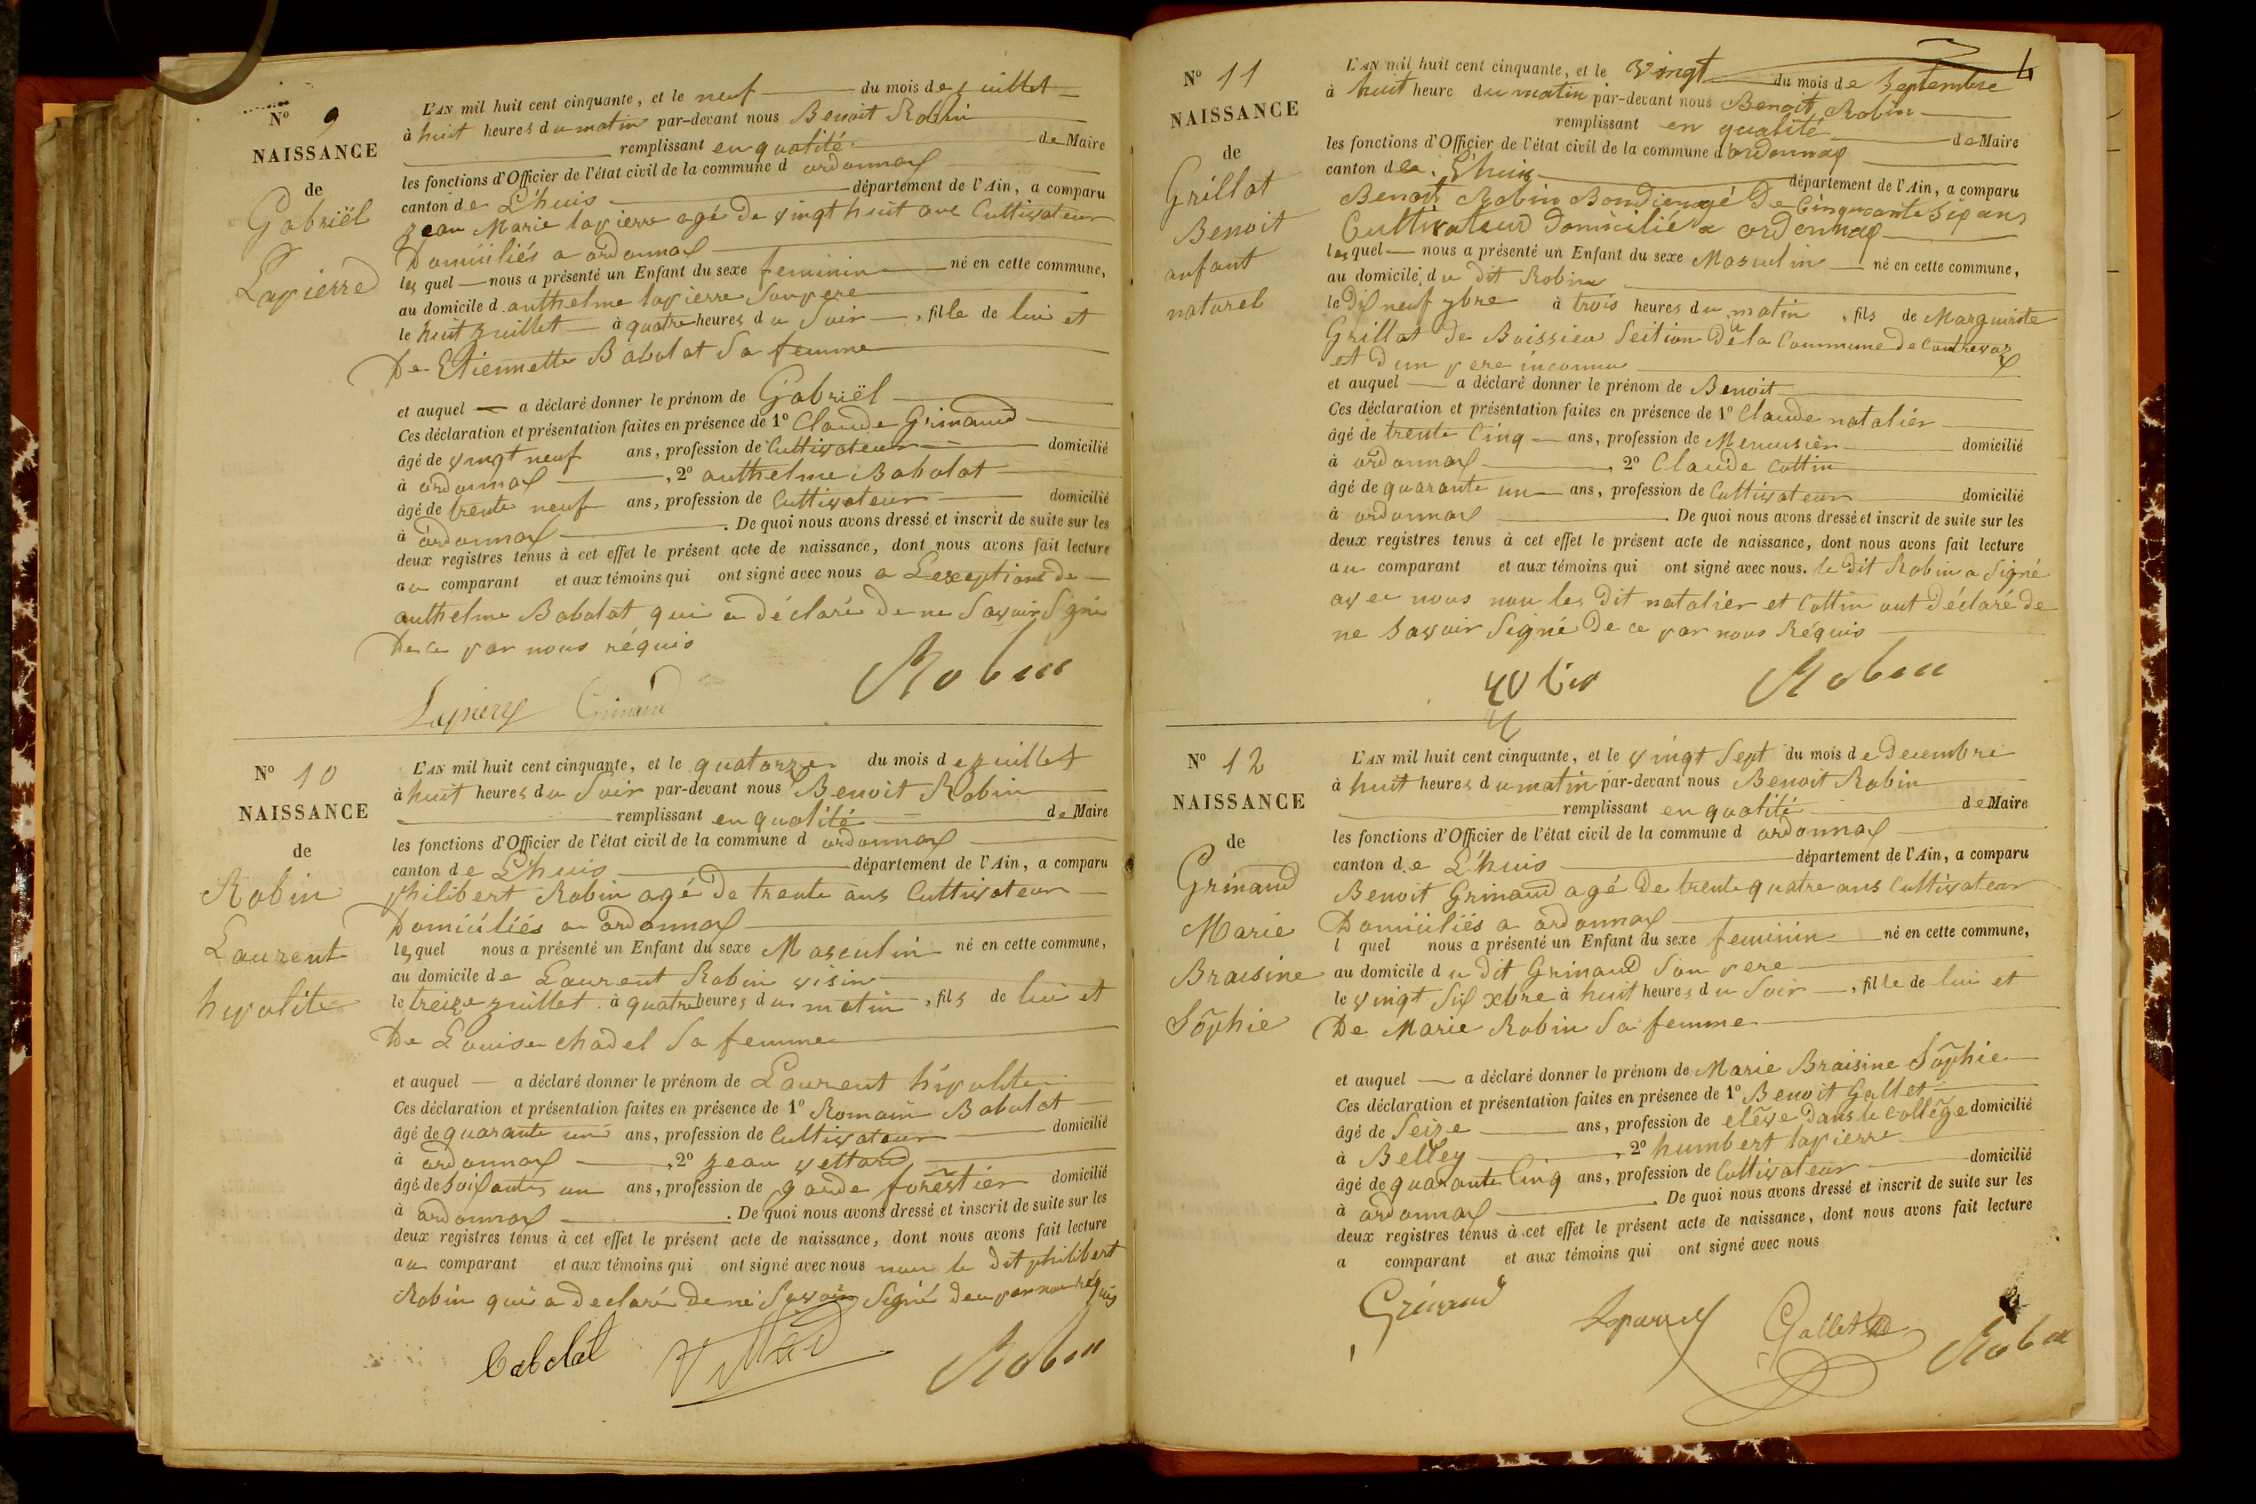 Nº 9
NAISSANCE
de
Gabriël
Lapierre
L'AN mil huit cent cinquante, et le neuf du mois de juillet
à huit heures du matin par-devant nous Benoit Robin
remplissant en qualité de Maire
les fonctions d'Officier de l'état civil de la commune d ordonnax
canton de L'huis département de l'Ain, a comparu
jean Marie lapierre agé de vingt huit ans Cultivateur
Domiciliés a ordonnax
lesquel nous a présenté un Enfant du sexe feminin né en cette commune,
au domicile d anthelme lapierre son pere
le huit juillet à quatre heures du Soir, fille de lui et
De Etiennette Babolat Sa femme
et auquel a déclaré donner le prénom de Gabriël
Ces déclaration et présentation faites en présence de 1º Claude Grinand
âgé de vingt neuf ans, profession de Cultivateur domicilié
à ordonnax, 2º anthelme Babolat
âgé de trente neuf ans, profession de Cultivateur domicilié
à ordonnax. De quoi nous avons dressé et inscrit de suite sur les
deux registres tenus à cet effet le présent acte de naissance, dont nous avons fait lecture
au comparant et aux témoins qui ont signé avec nous a Lexeptions de
anthelme Babolat qui a déclaré de ne Savoir Signé
De ce par nous réquis
Lapierre Grinand Robin
Nº 10
NAISSANCE
de
Robin
Laurent
hipolite
L'AN mil huit cent cinquante, et le quatorze du mois de juillet
à huit heures du Soir par-devant nous Benoit Robin
remplissant en qualité de Maire
les fonctions d'Officier de l'état civil de la commune d ordonnax
canton de L'huis département de l'Ain, a comparu
philibert Robin agé de trente ans Cultivateur
Domiciliés a ordonnax
lesquel nous a présenté un Enfant du sexe Masculin né en cette commune,
au domicile de Laurent Robin visin
le treize juillet à quatre heures du matin, fils de lui et
De Louise chadel Sa femme
et auquel a déclaré donner le prénom de Laurent hipolite
Ces déclaration et présentation faites en présence de 1º Romain Babolat
âgé de quarante un ans, profession de Cultivateur domicilié
à ordonnax, 2º jean vettard
âgé de Soixantes un ans, profession de garde forestier domicilié
à ordonnax. De quoi nous avons dressé et inscrit de suite sur les
deux registres tenus à cet effet le présent acte de naissance, dont nous avons fait lecture
au comparant et aux témoins qui ont signé avec nous non le Dit philibert
Robin qui a declaré de ne Savoir Signé de ce par nous réquis
Babolat Robin
Nº 11
NAISSANCE
de
Grillat
Benoit
anfant
naturel
L'AN mil huit cent cinquante, et le vingt du mois de Septembre
à huit heure du matin par-devant nous Benoit Robin
remplissant en qualité de Maire
les fonctions d'Officier de l'état civil de la commune d'ordonnax
canton de L'huis département de l'Ain, a comparu
Benoit Robin Bondien agé De Cinquante Six ans
Cultivateur Domicilié a ordonnax
lesquel nous a présenté un Enfant du sexe Masculin né en cette commune,
au domicile du dit Robin
le Dix neuf 7bre à trois heures du matin, fils de Marguirite
Grillat de Boissieu Seition De la Commune De Contrevoz
et d'un pere inconnu
et auquel a déclaré donner le prénom de Benoit
Ces déclaration et présentation faites en présence de 1º Claude natalier
âgé de trente Cinq ans, profession de Menuisier domicilié
à ordonnax, 2º Claude Cottin
âgé de quarante un ans, profession de Cultivateur domicilié
à ordonnax. De quoi nous avons dressé et inscrit de suite sur les
deux registres tenus à cet effet le présent acte de naissance, dont nous avons fait lecture
au comparant et aux témoins qui ont signé avec nous. le Dit Robin a Signé
avec nous non les Dit natalier et Cottin ont Déclaré de
ne Savoir Signé De ce par nous Réquis
Robin
Nº 12
NAISSANCE
de
Grinand
Marie
Braisine
Sophie
L'AN mil huit cent cinquante, et le vingt Sept du mois de Decembre
à huit heures du matin par-devant nous Benoit Robin
remplissant en qualité de Maire
les fonctions d'Officier de l'état civil de la commune d ordonnax
canton de L'huis département de l'Ain, a comparu
Benoit Grinand agé De trente quatre ans Cultivateur
Domiciliés a ordonnax
l quel nous a présenté un Enfant du sexe feminin né en cette commune,
au domicile du dit Grinand Son pere
le vingt Six Xbre à huit heures du Soir, fille de lui et
De Marie Robin Sa femme
et auquel a déclaré donner le prénom de Marie Braisine Sophie
Ces déclaration et présentation faites en présence de 1º Benoit Gallet
âgé de Seize ans, profession de elève Dans le Collège domicilié
à Belley, 2º humbert lapierre
âgé de quarante Cinq ans, profession de Cultivateur domicilié
à ordonnax. De quoi nous avons dressé et inscrit de suite sur les
deux registres tenus à cet effet le présent acte de naissance, dont nous avons fait lecture
a comparant et aux témoins qui ont signé avec nous
Grinand Gallet Robin